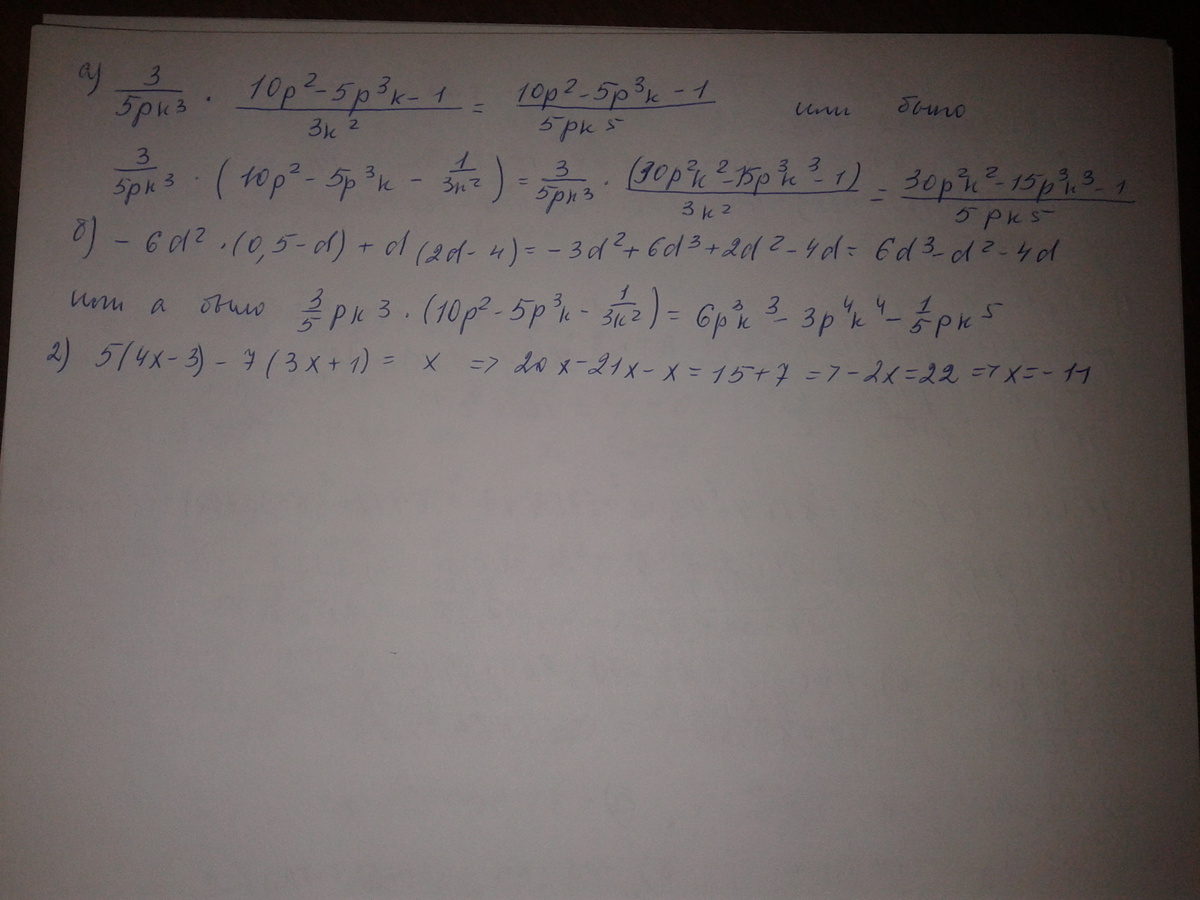 а) 3/(5pk³) · (10p² - 5p³k - 1)/(3k²) = (10p² - 5p³k - 1)/(5pk⁵) или было
3/(5pk³) · (10p² - 5p³k - 1/(3k²)) = 3/(5pk³) · (30p²k² - 15p³k³ - 1)/(3k²) = (30p²k² - 15p³k³ - 1)/(5pk⁵)
б) - 6d² · (0,5 - d) + d (2d - 4) = - 3d² + 6d³ + 2d² - 4d = 6d³ - d² - 4d
или а было 3/5 pk³ · (10p² - 5p³k - 1/(3k²)) = 6p³k³ - 3p⁴k⁴ - 1/5 pk⁵
2) 5(4x - 3) - 7(3x + 1) = x => 20x - 21x - x = 15 + 7 => - 2x = 22 => x = - 11